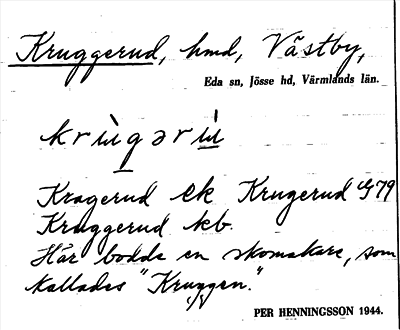 Kruggerud, hmd, Västby,
Eda sn, Jösse hd, Värmlands län.
krùgərù
Kragerud ek Krugerud G79
Kruggerud kb.
Här bodde en skomakare, som
kallades "Kruggen."
PER HENNINGSSON 1944.